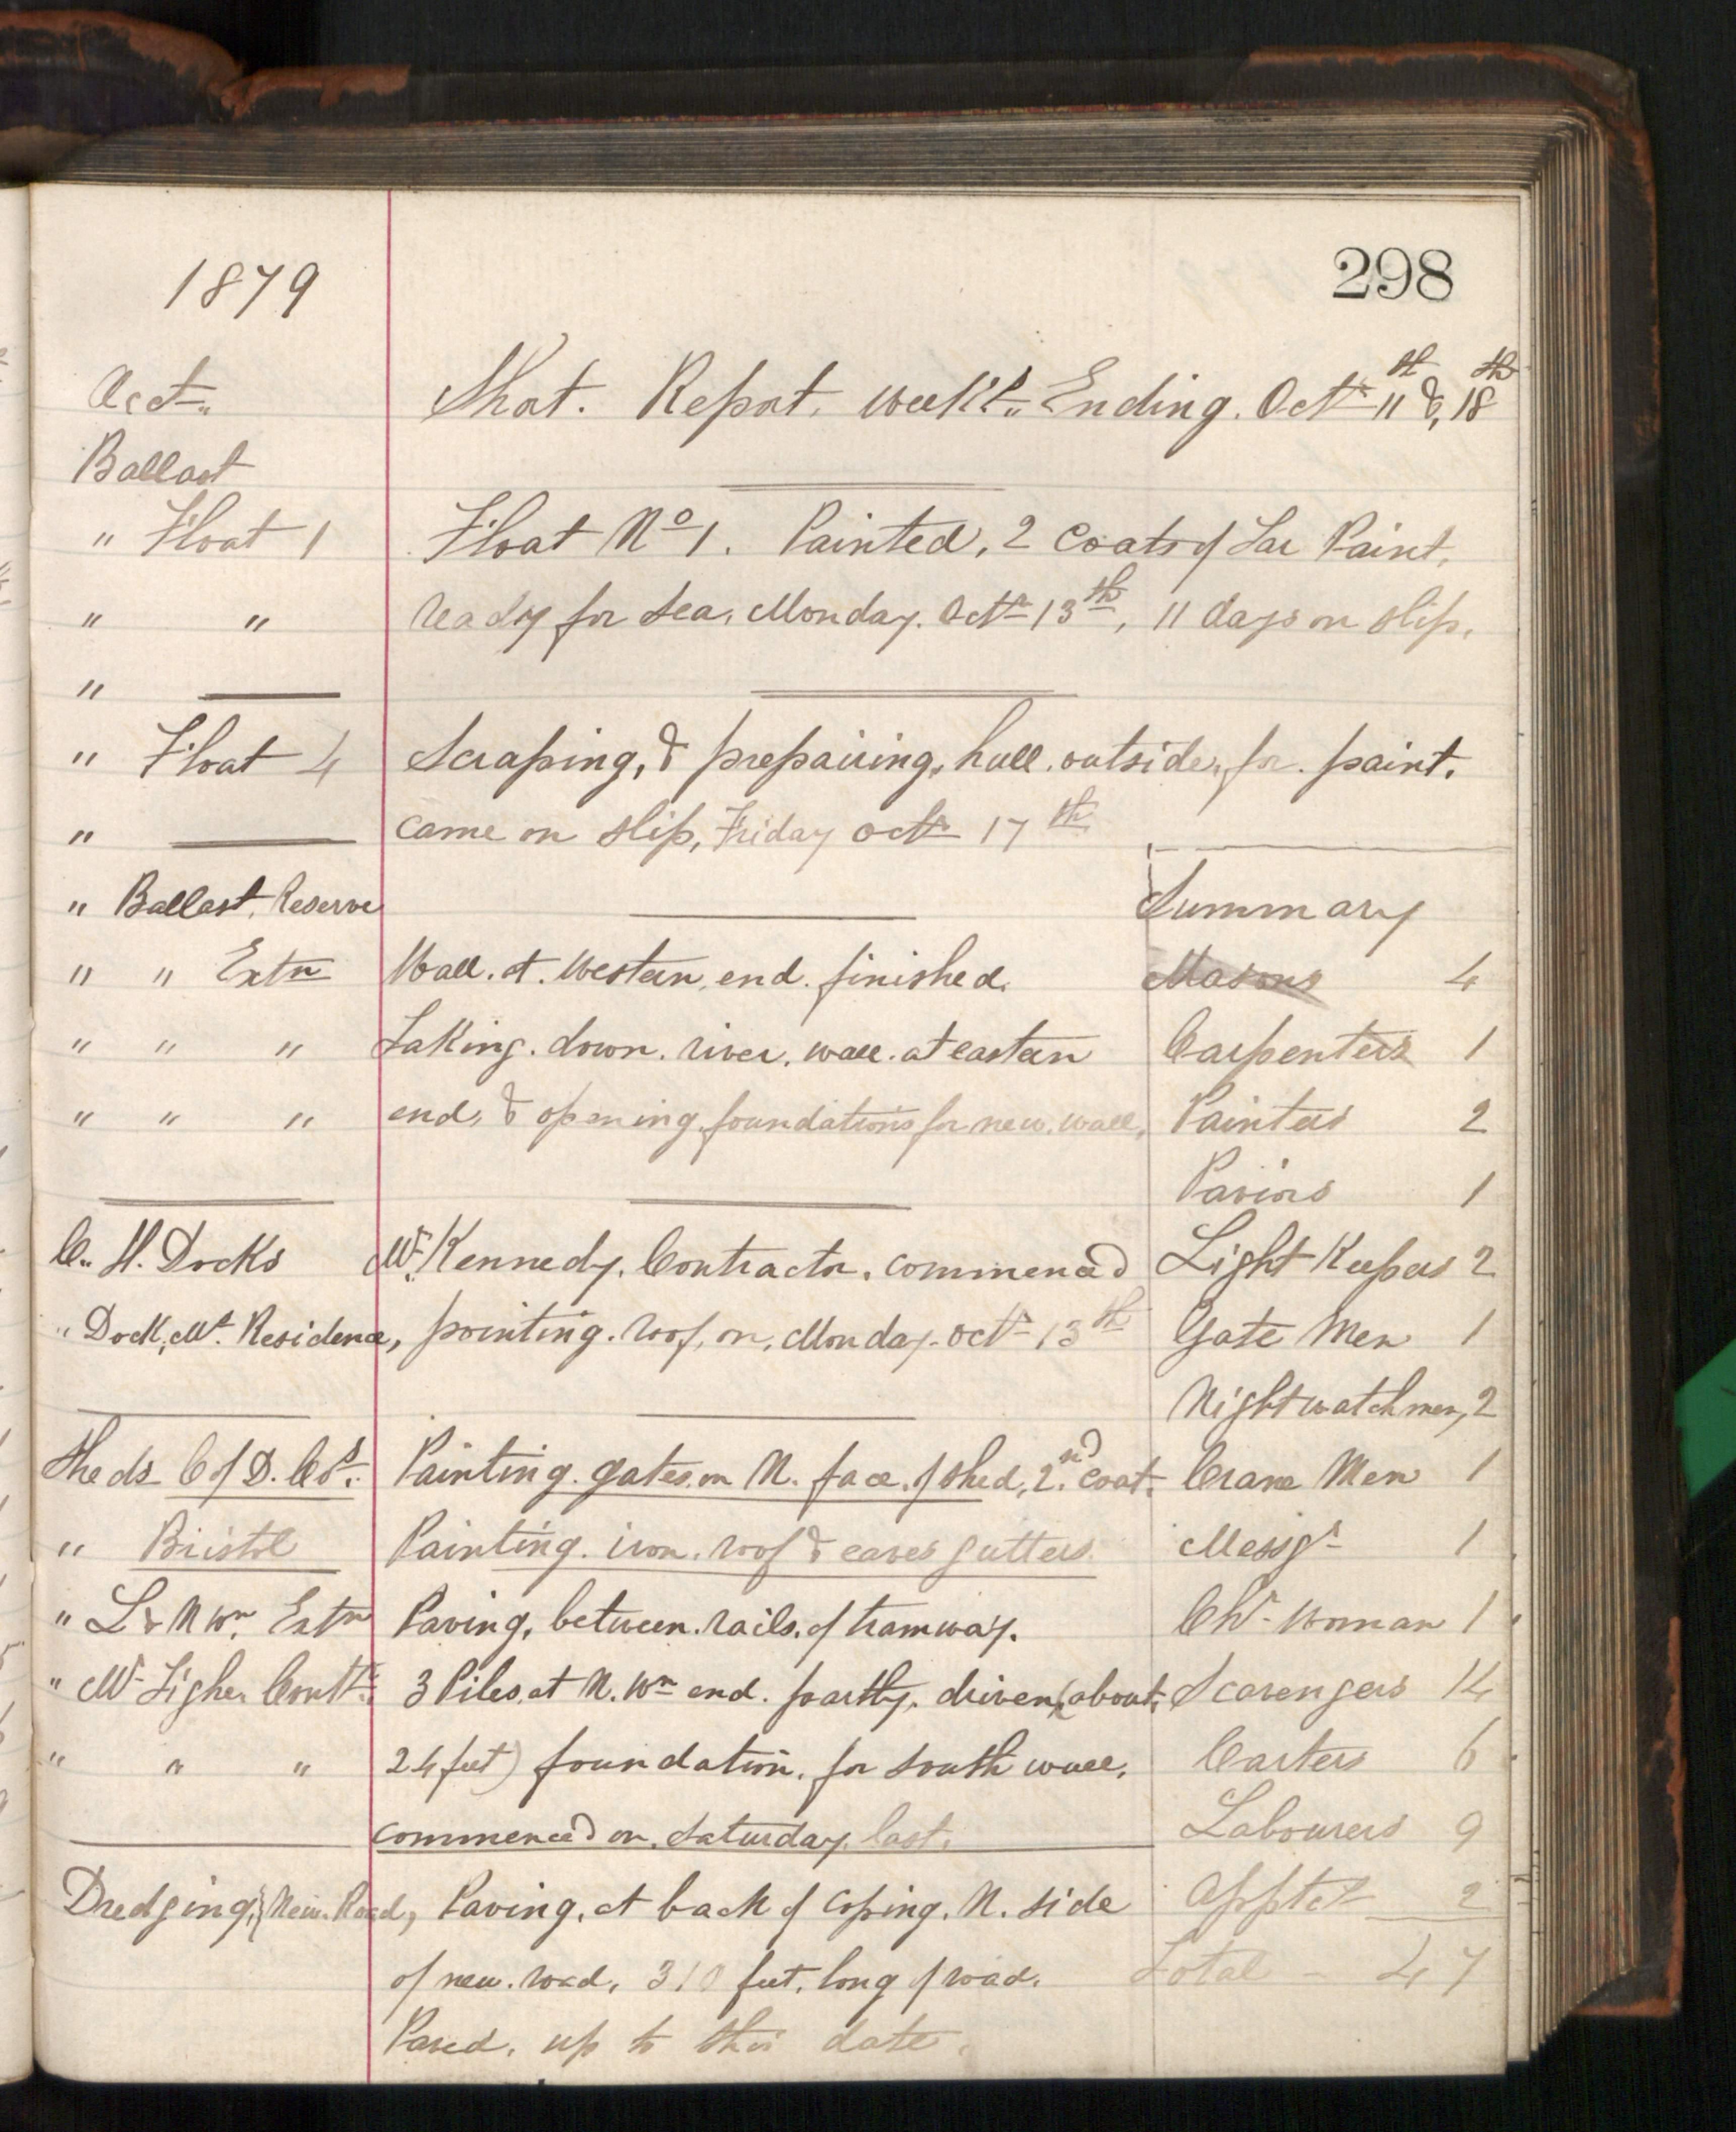 1879
298
Octr.
Short. Report. weeks Ending. Octr 11th & 18th
Ballast
" Float 1
Float No 1. Painted, 2 coats of Tar Paint,
" "
ready for sea, Monday. Octr 13th, 11 days on slip.
"
" Float 4
Scraping, & prepairing, hull outside, for paint.
"
came on slip, Friday octr 17th
" Ballast, Reserve
Summary
" " Extn
Wall. at Western, end. finished.
Masons 4
" " "
Taking. down. river. wall. at eastern
Carpenters 1
" " "
end, & opening foundations for new. wall,
Painters 2
Paviors 1
C. H. Docks
Mr. Kennedy. Contractor. commenced
Light Keepers 2
" Dock. Mr. Residence,
pointing. roof, on, Monday. octr 13th
Gate Men 1
Nightwatchmen, 2
Sheds C of D. Co.
Painting. gates. on N. face. of shed, 2nd. coat.
Crane Men 1
" Bristol
Painting. iron. roof & eaves gutters
Messgr 1
" L & N Wn. Extn
Paving, between. rails. of tramway.
Chr. Woman 1
" Mr Fisher Contr.
3 Piles. at N. Wn end. partly. driven (about
Scavengers 14
" " "
24 feet) foundation. for south wall.
Carters 6
commenced on. Saturday last.
Labourers 9
Dredging, New. Road,
Paving. at back of coping. N. side
Apptcs 2
of new. road, 310 feet. long of road.
Total - 47
Paved. up to this date.